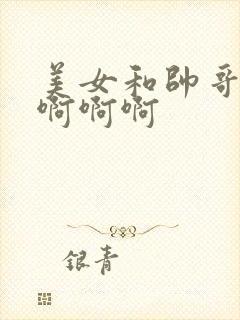 美女和帅哥
啊啊啊
银青